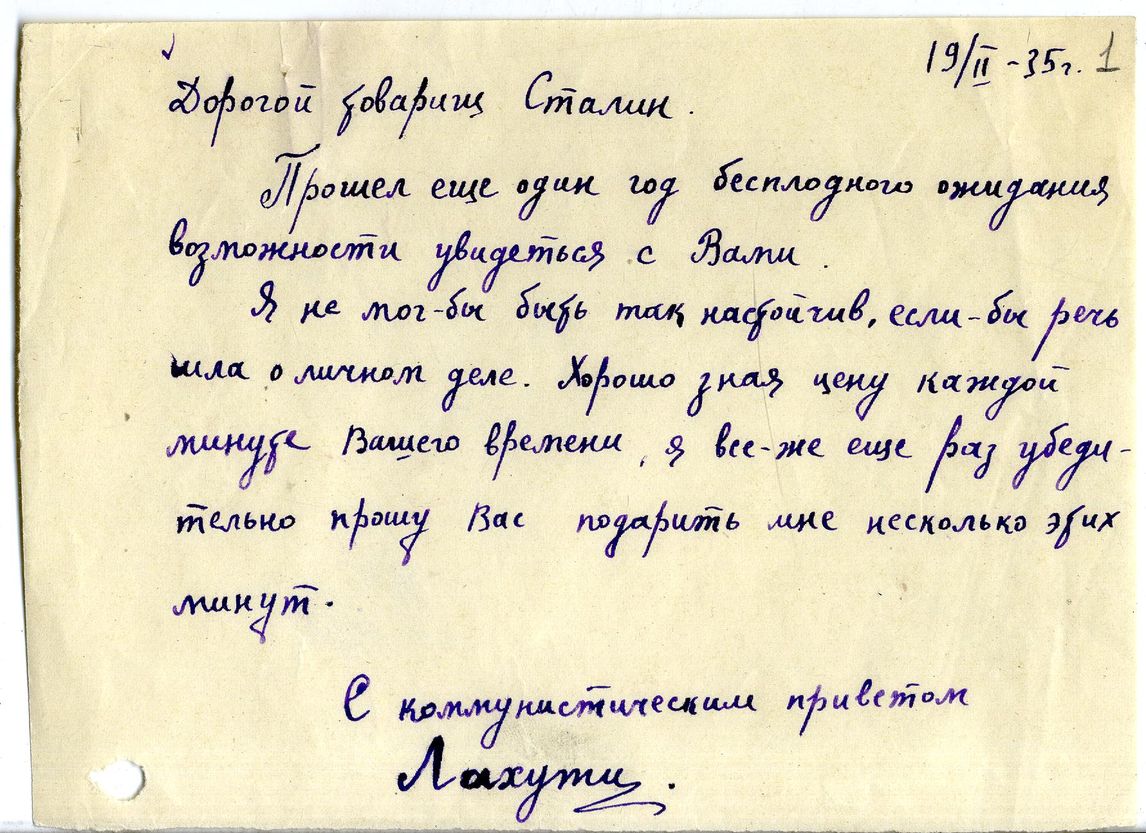 19/II -35г. 1
Дорогой товарищ Сталин.
Прошел еще один год бесплодного ожидания
возможности увидеться с Вами.
Я не мог-бы быть так настойчив, если-бы речь
шла о личном деле. Хорошо зная цену каждой
минуте Вашего времени, я все-же еще раз убеди-
тельно прошу Вас подарить мне несколько этих
минут.
С коммунистическим приветом
Лахути.